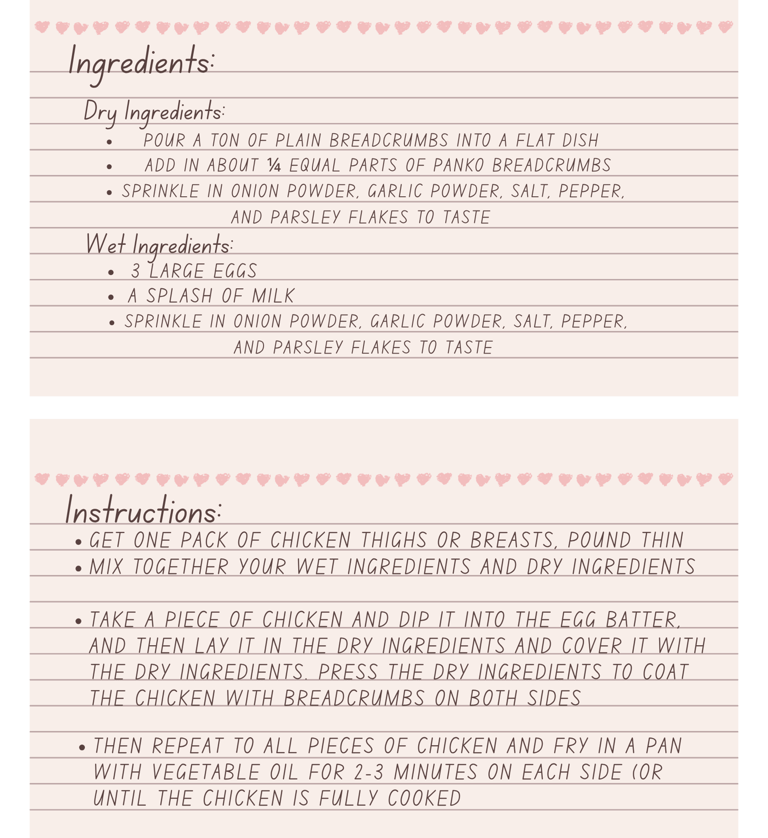 Ingredients:
Dry Ingredients:
• POUR A TON OF PLAIN BREADCRUMBS INTO A FLAT DISH
• ADD IN ABOUT ¼ EQUAL PARTS OF PANKO BREADCRUMBS
• SPRINKLE IN ONION POWDER, GARLIC POWDER, SALT, PEPPER,
AND PARSLEY FLAKES TO TASTE
Wet Ingredients:
• 3 LARGE EGGS
• A SPLASH OF MILK
• SPRINKLE IN ONION POWDER, GARLIC POWDER, SALT, PEPPER,
AND PARSLEY FLAKES TO TASTE
Instructions:
• GET ONE PACK OF CHICKEN THIGHS OR BREASTS, POUND THIN
• MIX TOGETHER YOUR WET INGREDIENTS AND DRY INGREDIENTS
• TAKE A PIECE OF CHICKEN AND DIP IT INTO THE EGG BATTER,
AND THEN LAY IT IN THE DRY INGREDIENTS AND COVER IT WITH
THE DRY INGREDIENTS. PRESS THE DRY INGREDIENTS TO COAT
THE CHICKEN WITH BREADCRUMBS ON BOTH SIDES
• THEN REPEAT TO ALL PIECES OF CHICKEN AND FRY IN A PAN
WITH VEGETABLE OIL FOR 2-3 MINUTES ON EACH SIDE (OR
UNTIL THE CHICKEN IS FULLY COOKED